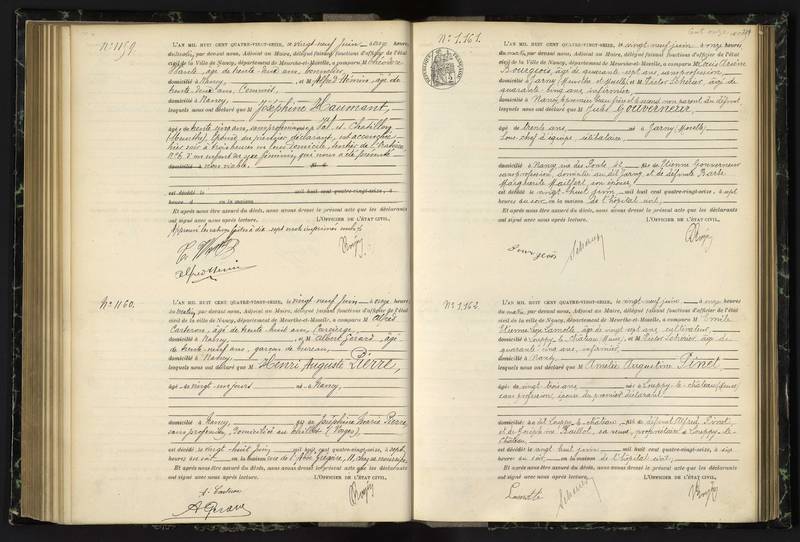 N° 1159.
L'AN MIL HUIT CENT QUATRE-VINGT-SEIZE, le vingt neuf Juin à onze heures
du matin, par devant nous, Adjoint au Maire, délégué faisant fonctions d'officier de l'état
civil de la ville de Nancy, département de Meurthe-et-Moselle, a comparu M Théodore
Haute, âgé de trente deux ans,
domicilié à Nancy, et M Alfred Henin, âgé de
trente deux ans, Commis,
domicilié à Nancy,
lesquels nous ont déclaré que Joséphine Haumant,
âgée de trente cinq ans, sans profession, née à Val et Chatillon
(Meurthe), épouse du premier déclarant, est accouchée
hier soir à trois heures en leur domicile,
N°6, d'un enfant du sexe féminin, qui nous a été présenté
domicilié à non viable.
est décédé le mil huit cent quatre-vingt-seize, à
heure d en la maison
Et après nous être assuré du décès, nous avons dressé le présent acte que les déclarants
ont signé avec nous après lecture. L'OFFICIER DE L'ÉTAT CIVIL,
Approuvé la radiation de dix sept mots imprimés nuls
Alfred Henin
N° 1160.
L'AN MIL HUIT CENT QUATRE-VINGT-SEIZE, le vingt neuf Juin à onze heures
du matin, par devant nous, Adjoint au Maire, délégué faisant fonctions d'officier de l'état
civil de la ville de Nancy, département de Meurthe-et-Moselle, a comparu M Alfred
Casteron, âgé de trente huit ans, Concierge,
domicilié à Nancy, et M Albert Gérard, âgé
de trente neuf ans, garçon de bureau,
domicilié à Nancy,
lesquels nous ont déclaré que Henri Auguste Pierre,
âgé de vingt un jours né à Nancy,
domicilié à Nancy, fils de Joséphine Marie Pierre
sans profession, domiciliée au (Vosges),
est décédé le vingt huit Juin mil huit cent quatre-vingt-seize, à sept
heures du soir en la maison rue de l'Abbé Grégoire, 11, chez sa nourrice
Et après nous être assuré du décès, nous avons dressé le présent acte que les déclarants
ont signé avec nous après lecture. L'OFFICIER DE L'ÉTAT CIVIL,
A. Gérard
Cent onze
N° 1.161.
L'AN MIL HUIT CENT QUATRE-VINGT-SEIZE, le vingt neuf juin à onze heures
du matin, par devant nous, Adjoint au Maire, délégué faisant fonctions d'officier de l'état
civil de la ville de Nancy, département de Meurthe-et-Moselle, a comparu M Louis Arsène
Bourgeois, âgé de quarante sept ans, sans profession,
domicilié à Jarny, Meurthe et Moselle, et M Victor, âgé de
quarante cinq ans, infirmier,
domicilié à Nancy, le premier beau frère & le second non parent du défunt
lesquels nous ont déclaré que Jules Gouverneur
âgé de trente ans né à Jarny (Moselle)
Sous chef d'équipe, célibataire,
domicilié à Nancy, rue des Ponts 42 fils de Etienne Gouverneur
sans profession, domicilié au dit Jarny et de défunte Barbe
Marguerite Maillfert, son épouse,
est décédé le vingt huit juin mil huit cent quatre-vingt-seize, à sept
heures du soir en la maison de l'hôpital civil,
Et après nous être assuré du décès, nous avons dressé le présent acte que les déclarants
ont signé avec nous après lecture. L'OFFICIER DE L'ÉTAT CIVIL,
Bourgeois
N° 1.162
L'AN MIL HUIT CENT QUATRE-VINGT-SEIZE, le vingt neuf juin à onze heures
du matin, par devant nous, Adjoint au Maire, délégué faisant fonctions d'officier de l'état
civil de la ville de Nancy, département de Meurthe-et-Moselle, a comparu M Emile
Etienne Lamotte, âgé de vingt sept ans, cultivateur,
domicilié à Louppy le Château (Meuse), et M Victor, âgé de
quarante cinq ans, infirmier,
domicilié à Nancy
lesquels nous ont déclaré que Amélie Augustine Pinet
âgée de vingt trois ans née à Louppy-le-château (Meuse)
sans profession, épouse du premier déclarant
domiciliée au dit Louppy le château, fille de défunt Alfred Pinet
et de Joséphine Caillot, sa veuve, propriétaire à Louppy-le-
Château,
est décédée le vingt huit juin mil huit cent quatre-vingt-seize, à six
heures du soir en la maison de l'hôpital civil,
Et après nous être assuré du décès, nous avons dressé le présent acte que les déclarants
ont signé avec nous après lecture. L'OFFICIER DE L'ÉTAT CIVIL,
Lamotte